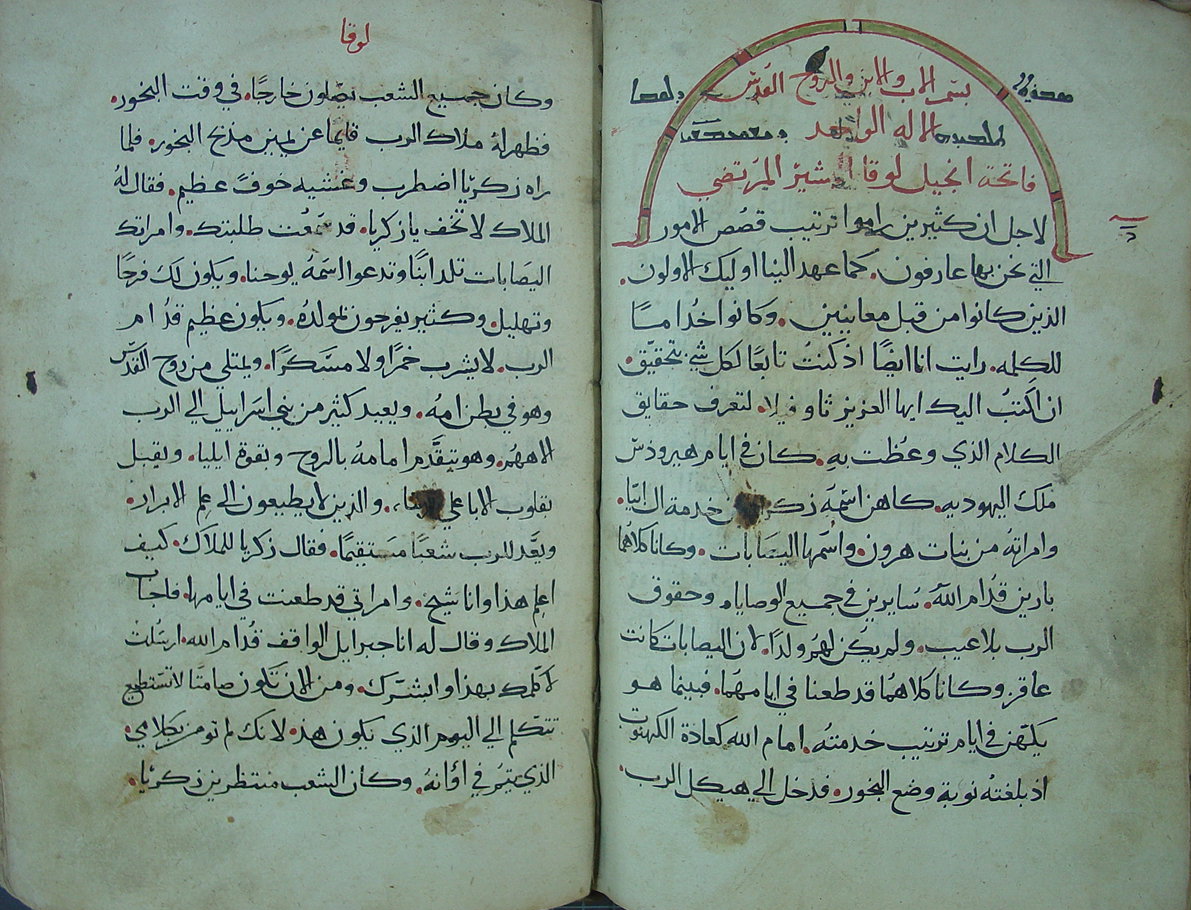 بسم الاب والابن والروح القدس
الاله الواحد
فاتحة انجيل لوقا البشير المرتضي
لاجل ان كثيرين راموا ترتيب قصص الامور
التي نحن بها عارفون. كما عهد الينا اوليك الاولون.
الذين كانوا من قبل معاينين. وكانوا خداما
للكلمه. رايت انا ايضا اذ كنت تابعا لكل شي بتحقيق.
ان اكتب اليك ايها العزيز ثاوفيلا. لتعرف حقايق
الكلام الذي وعظت به. كان في ايام هيرودس
ملك اليهوديه. كاهن اسمه خدمة ال ابيا.
وامراته من بنات هرون. واسمها اليصابات. وكانا كلاهما
بارين قدام الله. سايرين في جميع الوصايا. وحقوق
الرب بلا عيب. ولم يكن لهم ولدا. لان اليصابات كانت
عاقر. وكانا كلاهما قد طعنا في ايامهما. فبينما هو
يكهن في ايام ترتيب خدمته. امام الله كعادة الكهنوت
اذ بلغته نوبة وضع البخور. فدخل الي هيكل الرب.
لوقا
وكان جميع الشعب يصلون خارجا. في وقت البخور.
فظهر له ملاك الرب قايما عن يمين مذبح البخور. فلما
راه زكريا اضطرب وغشيه خوف عظيم. فقال له
الملاك لا تخف يا زكريا. قد سمعت طلبتك. وامراتك
اليصابات تلد ابنا وتدعوا اسمه يوحنا. ويكون لك فرحا
وتهليل. وكثير يفرحون بمولده. ويكون عظيم قدام
الرب. لا يشرب خمرا ولا مسكرا. ويمتلي من روح القدس
وهو في بطن امه. ويعيد كثير من بني اسراييل الي الرب
الاههم. وهو يتقدم امامه بالروح وبقوة ايليا. ويقبل
بقلوب الابا علي. والذين لا يطيعون الي علم الابرار.
ويعد للرب شعبا مستقيما. فقال زكريا للملاك. كيف
اعلم هذا وانا شيخ. وامراتي قد طعنت في ايامها. فاجاب
الملاك وقال له انا جبرايل الواقف قدام الله. ارسلت
لاكلمك بهذا وابشرك. ومن الان تكون صامتا لا تستطيع
تتكلم الي اليوم الذي يكون هذا. لانك لم تومن بكلامي.
الذي يتم في اوانه. وكان الشعب منتظرين زكريا.